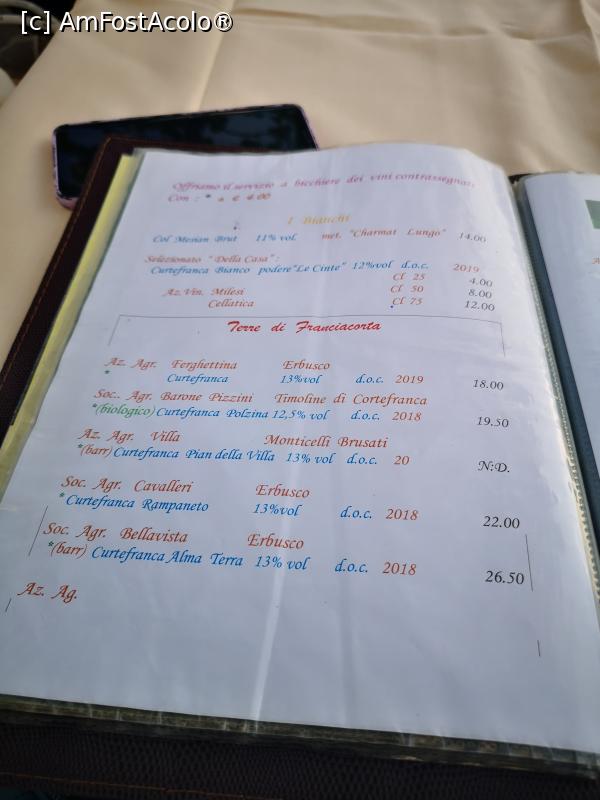 [c] AmFostAcolo®
Offriamo il servizio a bicchiere dei vini contrassegnati
Con : * a € 4.00
I Bianchi
Col Mesian Brut 11% vol. met. "Charmat Lungo" 14.00
Selezionato "Della Casa" :
Curtefranca Bianco podere "Le Cinte" 12%vol d.o.c. 2019
Cl 25 4.00
Az. Vin. Milesi Cl 50 8.00
Cellatica Cl 75 12.00
Terre di Franciacorta
Az. Agr. Ferghettina Erbusco
* Curtefranca 13%vol d.o.c. 2019 18.00
Soc.. Agr. Barone Pizzini Timoline di Cortefranca
*(biologico) Curtefranca Polzina 12,5% vol d.o.c. 2018 19.50
Az. Agr. Villa Monticelli Brusati
*(barr) Curtefranca Pian della Villa 13% vol d.o.c. 20 N:D.
Soc. Agr. Cavalleri Erbusco
* Curtefranca Rampaneto 13%vol d.o.c. 2018 22.00
Soc. Agr. Bellavista Erbusco
*(barr) Curtefranca Alma Terra 13% vol d.o.c. 2018 26.50
Az. Ag.